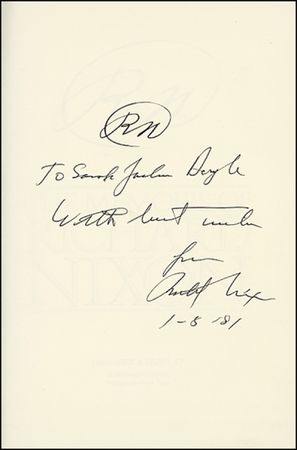 RN
To Sarah Jordan Doyle
With best wishes
from
Richard Nixon
1-8-81